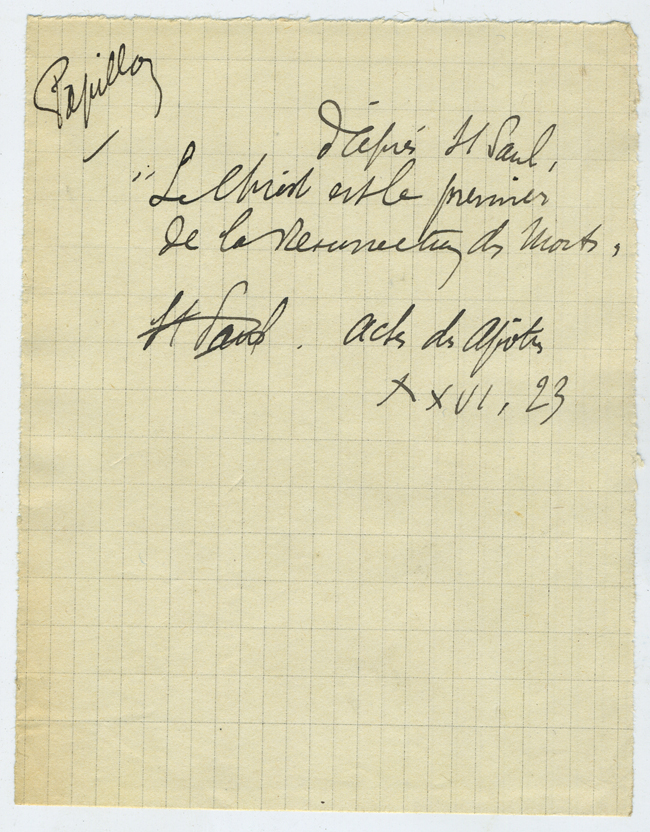 Papillon
d'après St Paul,
"Le Christ est le premier
de la Resurrection des Morts,
St Paul. Actes des Apôtres
XXVI, 23